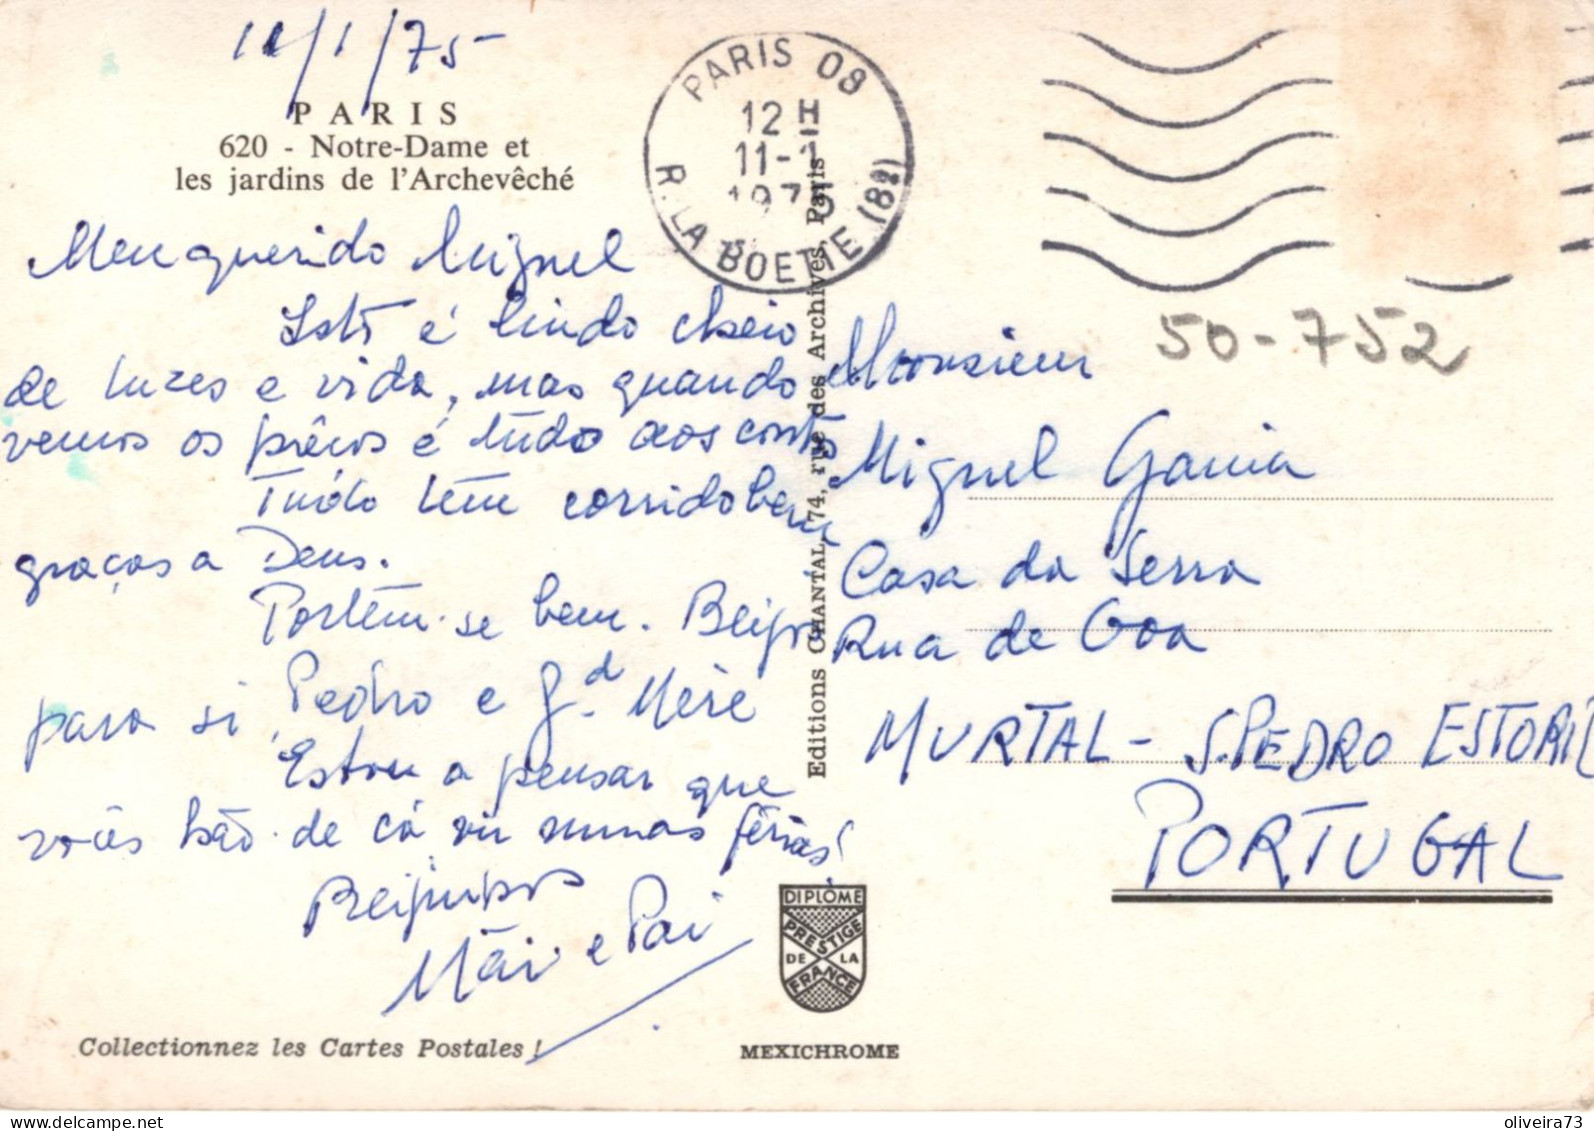 11/1/75
PARIS
620 - Notre-Dame et
les jardins de l'Archevêché
Meu querido Miguel
Isto é lindo cheio
de luzes e vida, mas quando
vemos os preços é tudo aos contos
Tudo tem corrido bem
graças a Deus.
Portem-se bem. Beijos
para si, Pedro e Gd. Mère
Estou a pensar que
vocês hão-de cá vir numas férias!
Beijinhos
Mãi e Pai
Collectionnez les Cartes Postales !
PARIS 08
12 H
11-1
1975
R. LA BOETIE (8e)
Editions CHANTAL, 74, rue des Archives, Paris
50-752
Monsieur
Miguel Garcia
Casa da Serra
Rua de Goa
MURTAL - S. PEDRO ESTORIL
PORTUGAL
DIPLÔME
PRESTIGE
DE LA
FRANCE
MEXICHROME
oliveira73